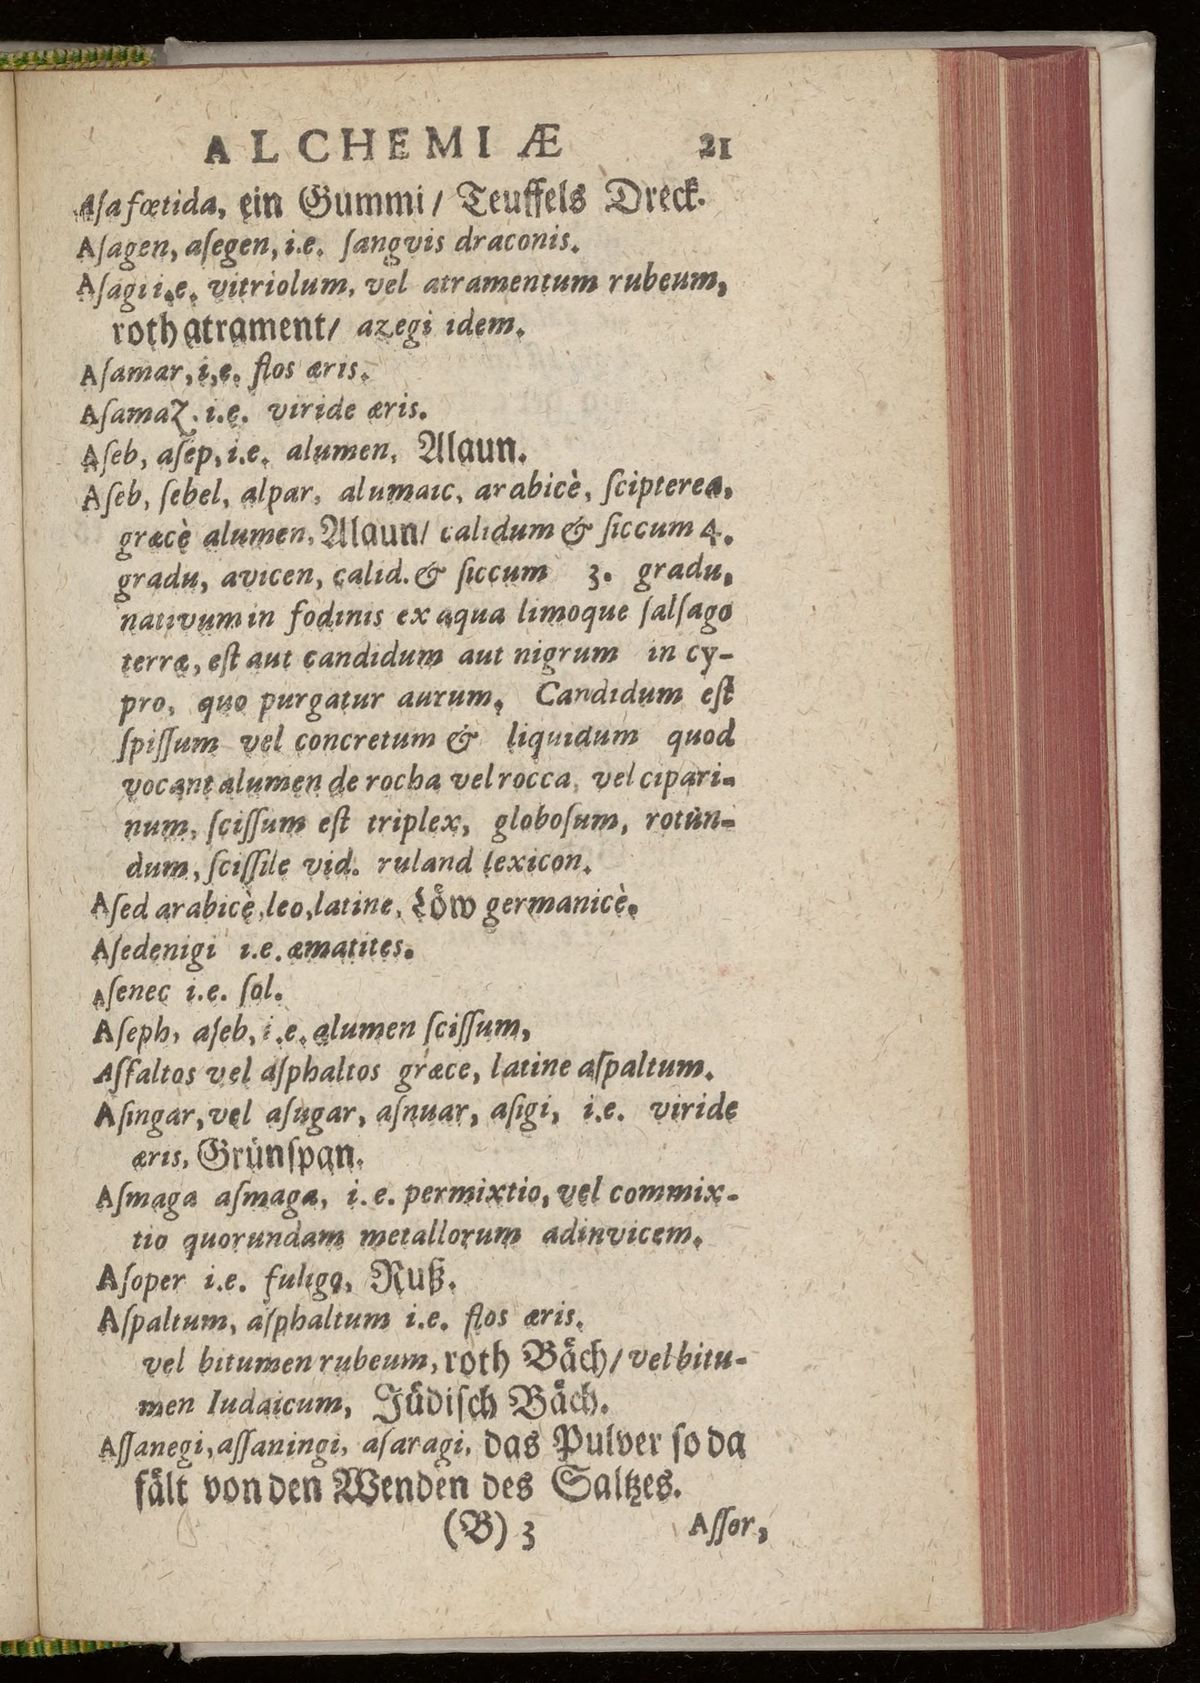 ALCHEMIÆ 21
Aſa fœtida, ein Gummi/ Teuffels Dreck.
Aſagen, aſegen, i.e. ſangvis draconis.
Aſagi i.e. vitriolum, vel atramentum rubeum,
roth atrament/ azegi idem.
Aſamar, i.e. flos æris.
Aſamaz. i.e. viride æris.
Aſeb, aſep, i.e. alumen, Alaun.
Aſeb, ſebel, alpar, alumaic, arabicè, ſcipterea,
græcè alumen, Alaun/ calidum & ſiccum 4.
gradu, avicen, calid. & ſiccum 3. gradu,
nativum in fodinis ex aqua limoque ſalſago
terræ, eſt aut candidum aut nigrum in cy-
pro, quo purgatur aurum, Candidum eſt
ſpiſſum vel concretum & liquidum quod
vocant alumen de rocha vel rocca, vel cipari-
num, ſciſſum eſt triplex, globoſum, rotûn-
dum, ſciſſile vid. ruland lexicon.
Aſed arabicè, leo, latine, Loͤw germanicè.
Aſedenigi i.e. æmatites.
Aſenec i.e. ſol.
Aſeph, aſeb, i.e. alumen ſciſſum,
Aſfaltos vel aſphaltos græce, latine aſpaltum.
Aſingar, vel aſugar, aſnuar, aſigi, i.e. viride
æris, Gruͤnſpan.
Aſmaga aſmaga, i.e. permixtio, vel commix-
tio quorundam metallorum adinvicem.
Aſoper i.e. fuligo, Ruß.
Aſpaltum, aſphaltum i.e. flos æris.
vel bitumen rubeum, roth Baͤch/ vel bitu-
men Iudaicum, Juͤdiſch Baͤch.
Aſſanegi, aſſaningi, aſaragi, das Pulver ſo da
faͤlt von den Wenden des Saltzes.
(B) 3 Aſſor,